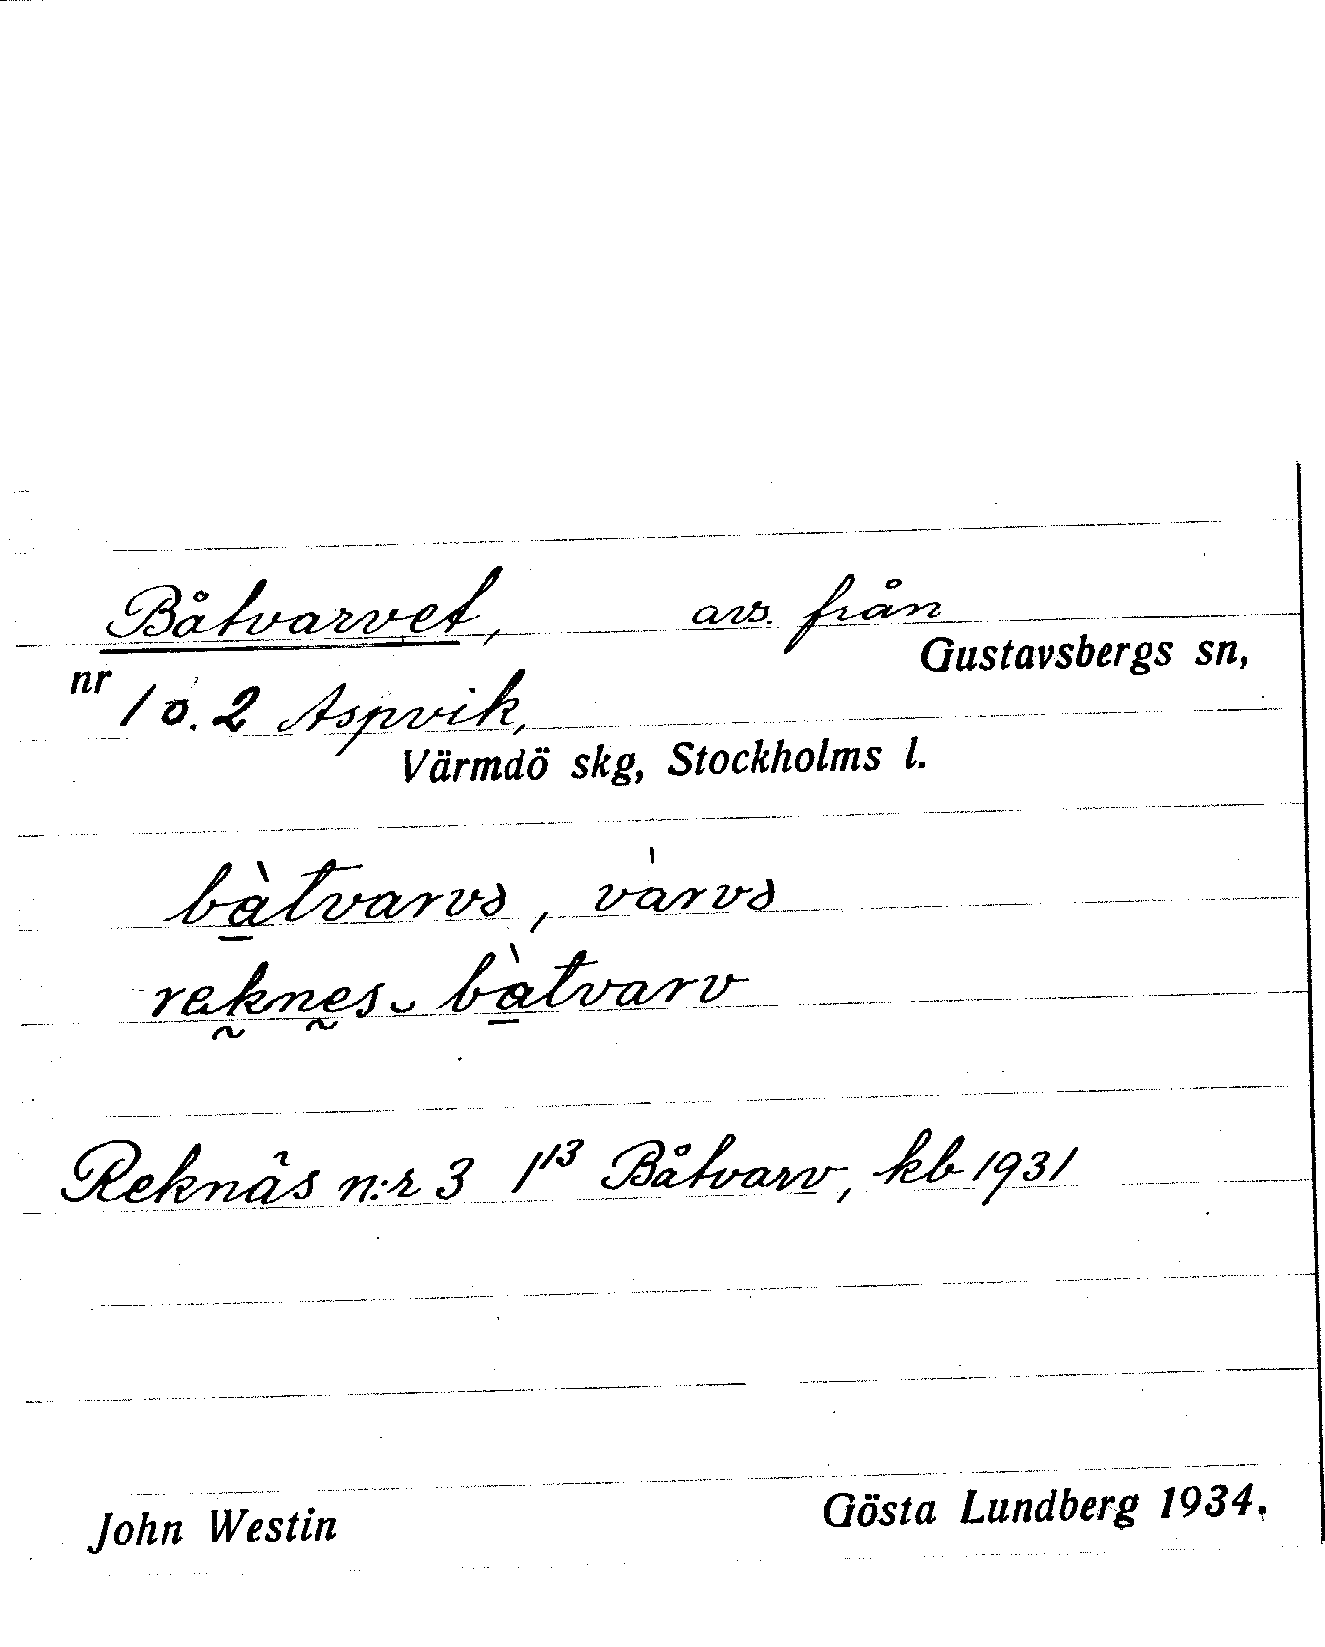 Båtvarvet, avs. från
Gustavsbergs sn,
nr 1 o. 2 Aspvik,
Värmdö skg, Stockholms l.
bà̱tvarvə, várvə
ra̰knḛs‿bà̱tvarv
Reknäs n:r 3 1¹³ Båtvarv, kb 1931
John Westin Gösta Lundberg 1934.